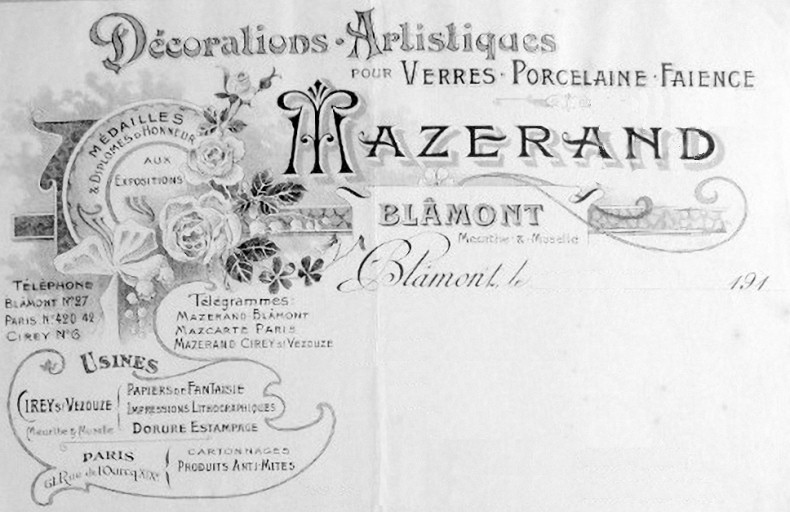 Décorations · Artistiques
POUR VERRES · PORCELAINE · FAIENCE
MAZERAND
MÉDAILLES
& DIPLÔMES D'HONNEUR
AUX
EXPOSITIONS
BLÂMONT
Meurthe-&-Moselle
Blâmont, le 191
TÉLÉPHONE
BLÂMONT N°27
PARIS N°420 42
CIREY N°6
Télégrammes:
MAZERAND BLÂMONT
MAZCARTE PARIS
MAZERAND CIREY s/ VEZOUZE
USINES
CIREY s/ VEZOUZE
Meurthe & Moselle
PAPIERS DE FANTAISIE
IMPRESSIONS LITHOGRAPHIQUES
DORURE ESTAMPAGE
PARIS
61, Rue de l'Ourcq XIXe
CARTONNAGES
PRODUITS ANTI-MITES